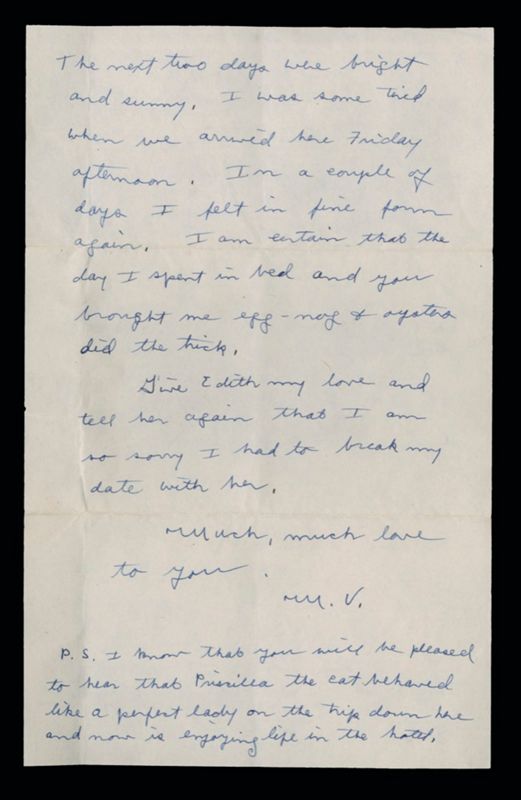 The next two days were bright
and sunny. I was some tired
when we arrived here Friday
afternoon. In a couple of
days I felt in fine form
again. I am certain that the
day I spent in bed and you
brought me egg-nog & oysters
did the trick.
Give Edith my love and
tell her again that I am
so sorry I had to break my
date with her.
Much, much love
to you.
M. V.
P.S. I know that you will be pleased
to hear that Priscilla the cat behaved
like a perfect lady on the trip down here
and now is enjoying life in the hotel.